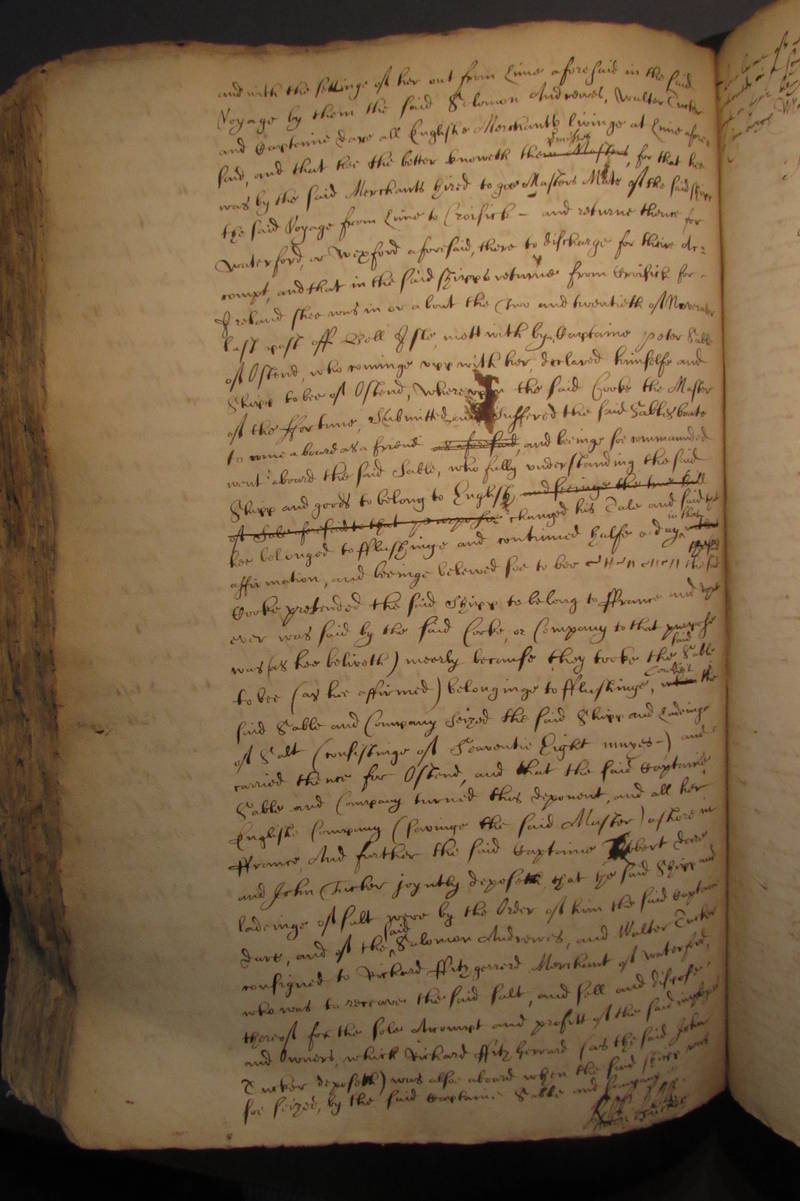 and with the settinge of her out from Lime aforesaid in the said
Voyage by them the said Salomon Andrewes, Walter Tucker
and Captaine Dare all English Merchants livinge at Lime afore=
said, and that hee the better knoweth the for that hee
was by the said Merchants hired to goe Masters Mate of the said shipp
the said Voyage from Lime to Croisick - and returne thence for
Waterford, or Wexford aforesaid, there to discharge for their ac=
compt, and that in the said shipps returne from Croisick for
Ireland shee was in or about the Two and twentieth of November
last past off Bell Isle, mett with by Captaine Peter Sable
of Ostend, who cominge upp with her declared himselfe and
Shipp to bee of Ostend, Whereupon the said Cooke the Master
of the ffortune, Submitted and Suffered the said Sables boate
to come aboard as a friend as aforesaid, and beeinge soe commanded
went aboard the said Sable, who fully understanding the said
Shipp and goods to belong to English and seeinge the
of Sable to that purpose changed his Tale and said that
hee belonged to fflushinge and continued halfe a day in that
affirmation, and beeinge beleeved soe to bee the said
Cooke pretended the said Shipp to belong to ffrance and what
ever was said by the said Cooke, or Company to that purpose
was (as hee beliveth) meerly because they tooke the said Sable
to bee (as hee affirmed) belonginge to fflushinge, the
said Sable and Company seized the said Shipp and Ladeinge
of Salt (consistinge of Seaventie Eight muyes-) and
carried thence for Ostend, and that the said Captaine
Sable and Company turned this deponent, and all her
Englishe Company (savinge the said Master) ashore in
ffrance, And further the said Captaine Robert Dare
and John Tucker joyntly depose that the said Shipp and
ladeinge of salt were by the Order of him the said Captaine
Dare, and of the said Salomon Andrewes, and Walter Tucker
consigned to Rickard ffitzgerrerd Merchant of Waterford,
who was to receave the said salt, and sell and dispose
thereof for the sole Accompt and proffitt of the said imployers
and Owners, which Rickard ffitzgerrard (as the said John
Tucker deposeth) was alsoe aboard when the said shipp was
soe seized, by the said Captaine Sable and Company
John Tucker